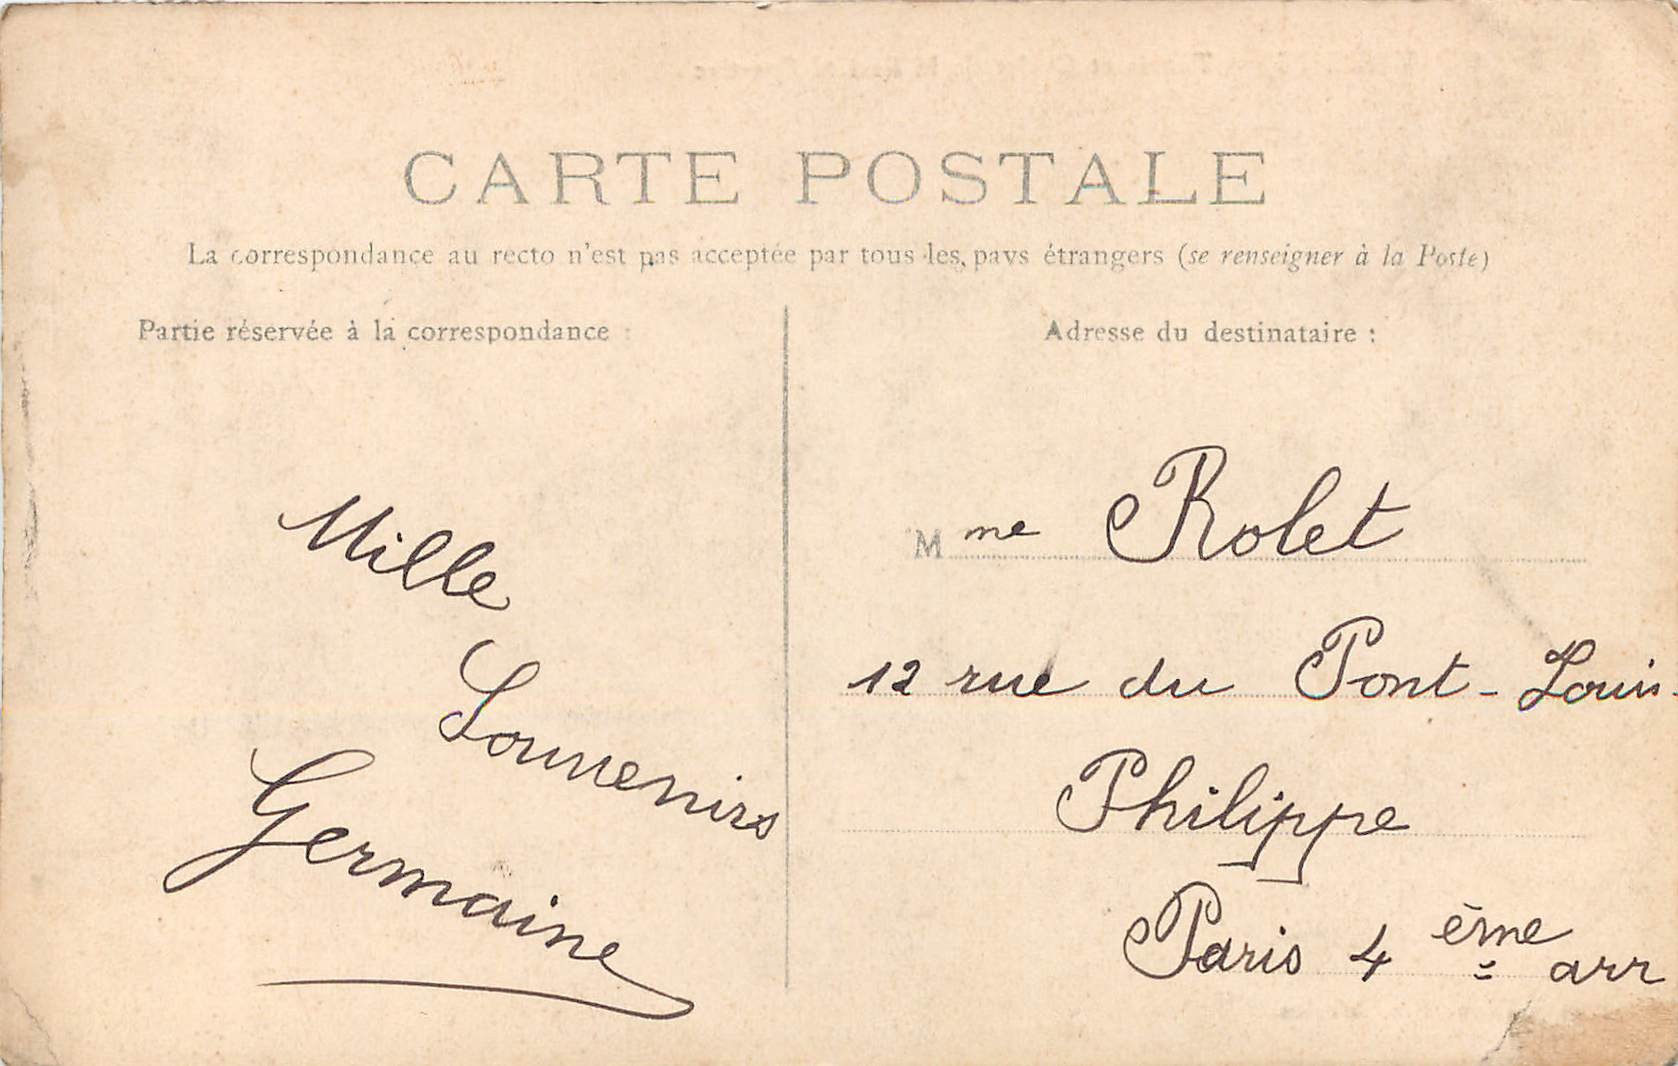 CARTE POSTALE
La correspondance au recto n'est pas acceptée par tous les pays étrangers (se renseigner à la Poste)
Partie réservée à la correspondance :
Mille
Souvenirs
Germaine
Adresse du destinataire :
Mme Rolet
12 rue du Pont-Louis-
Philippe
Paris 4 ème arr